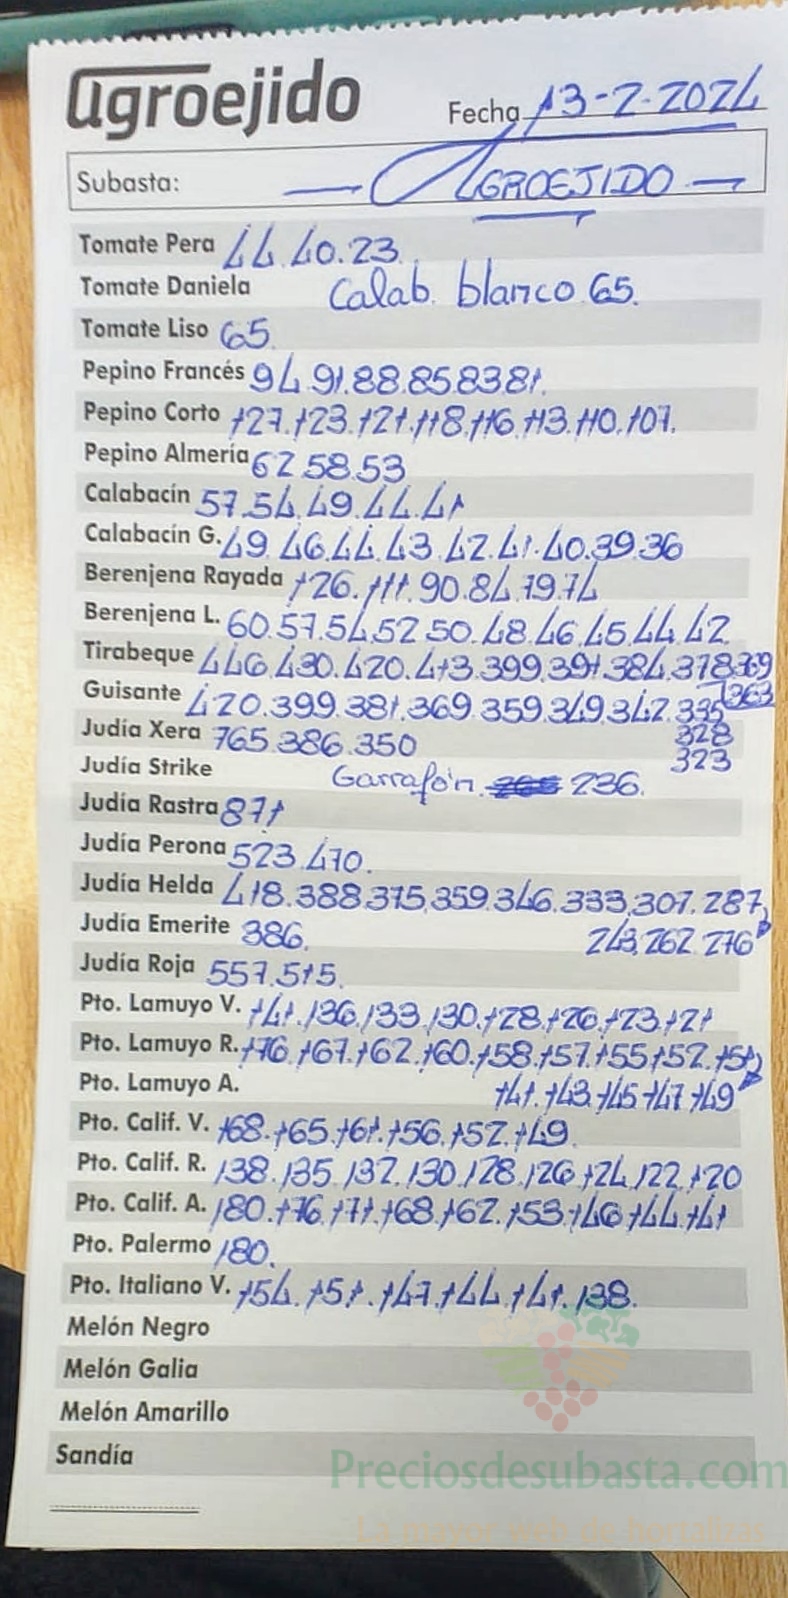 agroejido
Fecha 13-2-2024
Subasta: — AGROEJIDO —
Tomate Pera 44.40.23.
Tomate Daniela Calab. blanco 65.
Tomate Liso 65
Pepino Francés 94.91.88.85.83.81.
Pepino Corto 127.123.121.118.116.113.110.107.
Pepino Almería 62.58.53
Calabacín 57.54.49.44.41
Calabacín G. 49.46.44.43.42.41.40.39.36
Berenjena Rayada 126.111.90.84.79.74
Berenjena L. 60.57.54.52.50.48.46.45.44.42
Tirabeque 446.430.420.413.399.391.384.378.369
363
Guisante 420.399.381.369.359.349.342.335
328
Judía Xera 765.386.350
323
Judía Strike Garrafón 236.
Judía Rastra 871
Judía Perona 523.470.
Judía Helda 418.388.375.359.346.333.307.287,
Judía Emerite 386. 243.262.276
Judía Roja 557.515.
Pto. Lamuyo V. 141.136.133.130.128.126.123.121
Pto. Lamuyo R. 176.167.162.160.158.157.155.152.151
Pto. Lamuyo A. 141.143.145.147.149
Pto. Calif. V. 168.165.161.156.152.149.
Pto. Calif. R. 138.135.132.130.128.126.124.122.120
Pto. Calif. A. 180.176.171.168.162.153.146.144.141
Pto. Palermo 180.
Pto. Italiano V. 154.151.147.144.141.138.
Melón Negro
Melón Galia
Melón Amarillo
Sandía
Preciosdesubasta.com
La mayor web de hortalizas